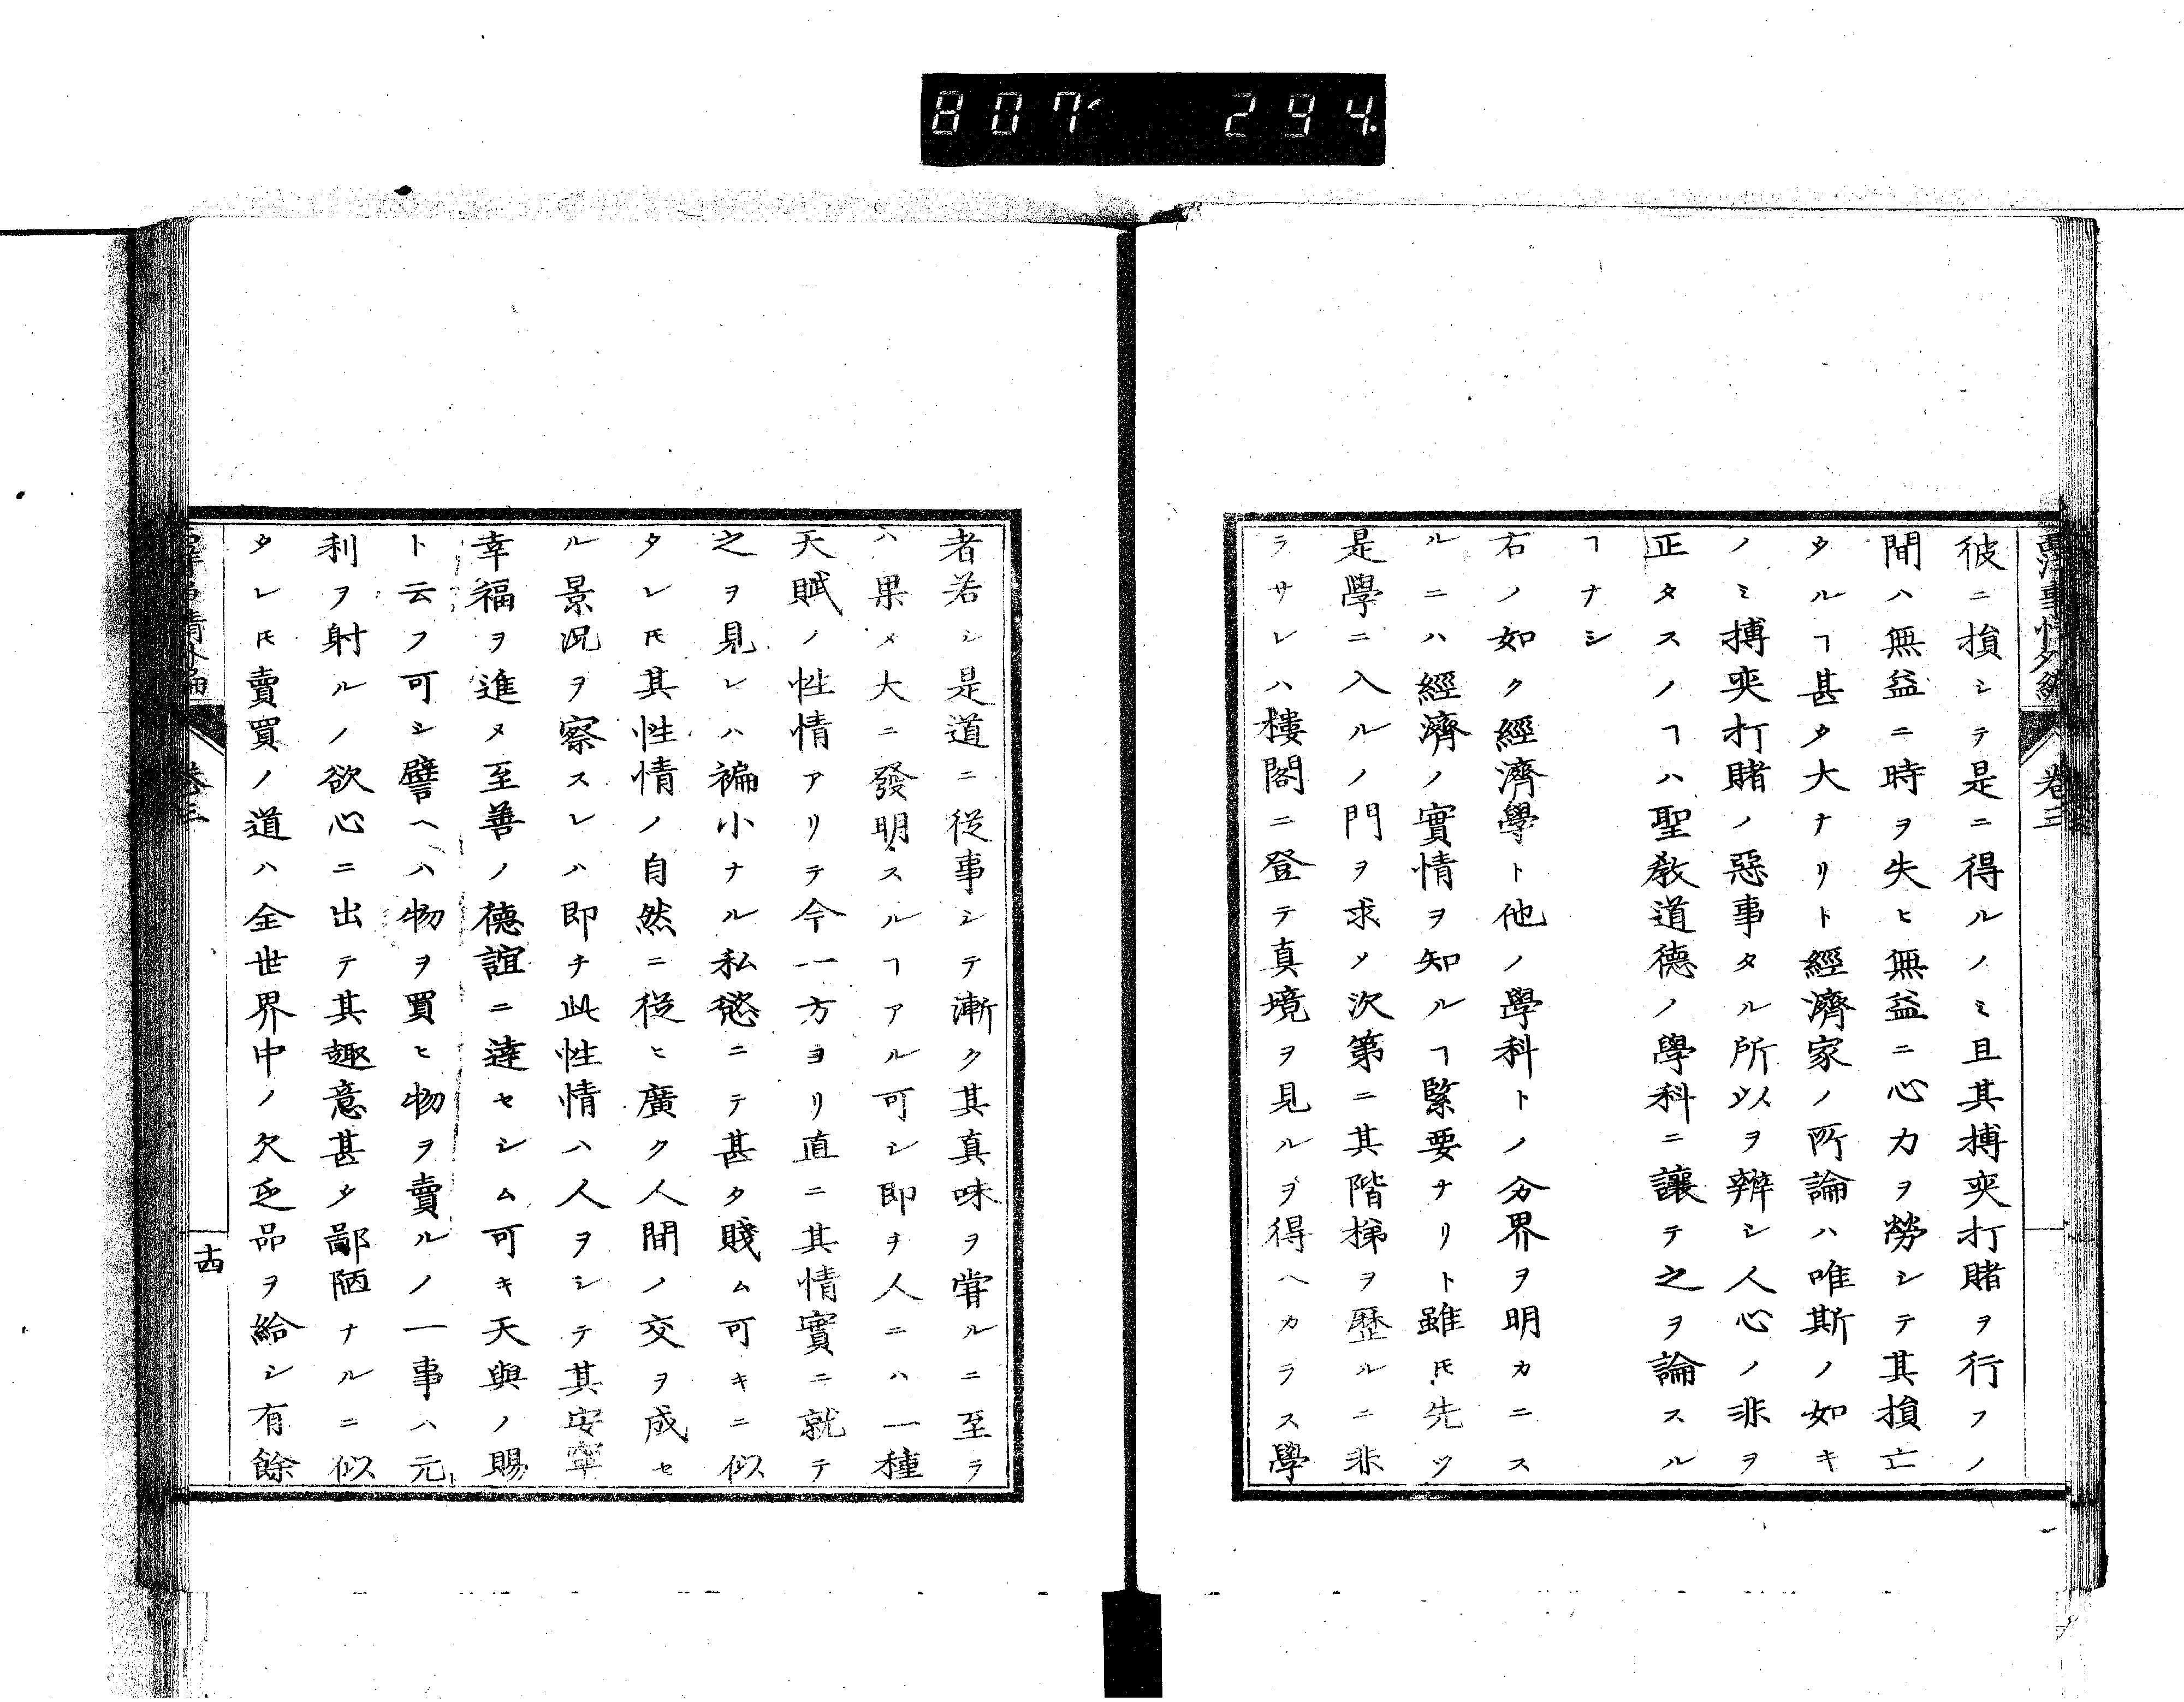 807 294
西洋事情外編 卷三
彼ニ損シテ是ニ得ルノミ且其搏奕打賭ヲ行フノ
間ハ無益ニ時ヲ失ヒ無益ニ心力ヲ勞シテ其損亡
タルヿ甚タ大ナリト經濟家ノ所論ハ唯斯ノ如キ
ノミ搏奕打賭ノ惡事タル所以ヲ辨シ人心ノ非ヲ
正タスノヿハ聖教道德ノ學科ニ讓テ之ヲ論スル
ヿナシ
右ノ如ク經濟學ト他ノ學科トノ分界ヲ明カニス
ルニハ經濟ノ實情ヲ知ルヿ緊要ナリト雖𪜈先ツ
是學ニ入ルノ門ヲ求メ次第ニ其階梯ヲ歴ルニ非
ラサレハ樓閣ニ登テ真境ヲ見ルヲ得ヘカラス學
者若シ是道ニ從事シテ漸ク其真味ヲ甞ルニ至ラ
ハ果メ大ニ發明スルヿアル可シ即チ人ニハ一種
天賦ノ性情アリテ今一方ヨリ直ニ其情實ニ就テ
之ヲ見レハ褊小ナル私慾ニテ甚タ賤ム可キニ似
タレ𪜈其性情ノ自然ニ從ヒ廣ク人間ノ交ヲ成セ
ル景況ヲ察スレハ即チ此性情ハ人ヲシテ其安寧
幸福ヲ進メ至善ノ德誼ニ達セシム可キ天與ノ賜
ト云フ可シ譬ヘハ物ヲ買ヒ物ヲ賣ルノ一事ハ元ト
利ヲ射ルノ欲心ニ出テ其趣意甚タ鄙陋ナルニ似
タレ𪜈賣買ノ道ハ全世界中ノ欠乏品ヲ給シ有餘
西洋事情外編 卷三 十四